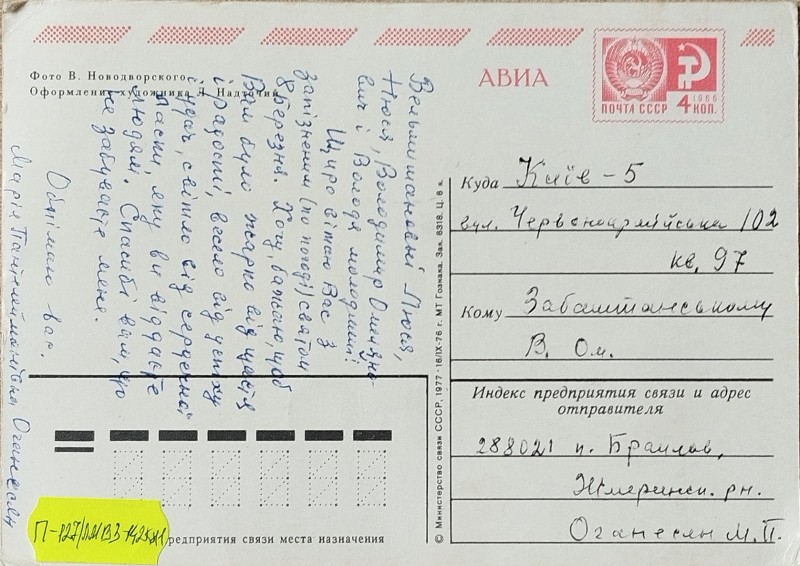 Фото В. Новодворского
Оформление художника Л. Надточий
АВИА
ПОЧТА СССР 4 1966 КОП.
Вельмишановні Люся,
Нюся, Володимир Омеляно-
вич і Володя молодший!
Щиро вітаю Вас з
запізненим (по погоді) святом
8 березня. Хочу, бажаю, щоб
Вам було жарко від щастя
і радості, весело від успіху
і удач, світло від сердечної
ласки, яку ви віддаєте
людям. Спасибі вам, що
не забуваєте мене.
Обнімаю вас.
Марія Оганесян
Куда Київ - 5
вул. Червоноармійська 102
кв. 97
Кому Забаштанському
В. Ом.
Индекс предприятия связи и адрес
отправителя
288021 п. Браилов,
Жмеринск. рн.
Оганесян М. П.
© Министерство связи СССР, 1977 - 16/IX-76 г. МТ Гознака. Зак. 6318. Ц. 6 к.
редприятия связи места назначения